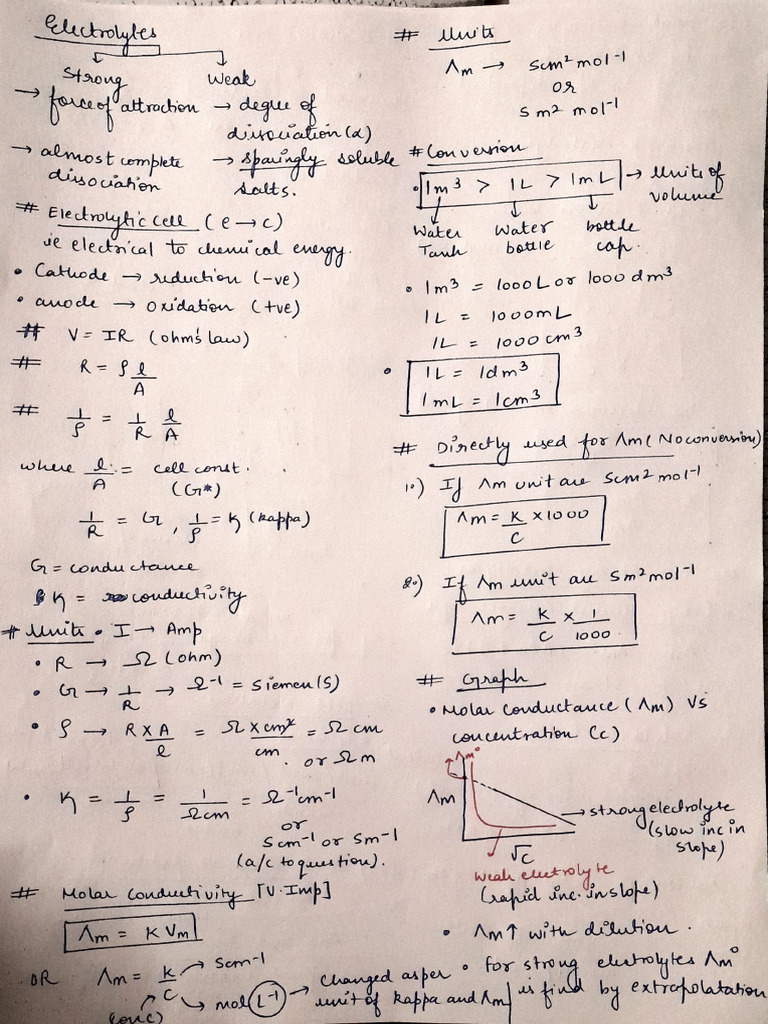 Electrolytes
Strong Weak
→ force of attraction → degree of dissociation (α)
→ almost complete dissociation → sparingly soluble salts.
# Electrolytic cell (e → c)
ie electrical to chemical energy.
• Cathode → reduction (-ve)
• anode → oxidation (+ve)
# V = IR (ohm's law)
# R = ρ l/A
# 1/ρ = 1/R l/A
where l/A = cell const. (G*)
1/R = G, 1/ρ = K (kappa)
G = conductance
K = conductivity
# Units • I → Amp
• R → Ω (ohm)
• G → 1/R → Ω⁻¹ = Siemen (S)
• ρ → R × A/l = Ω × cm²/cm = Ω cm
or Ω m
• K = 1/ρ = 1/Ωcm = Ω⁻¹cm⁻¹
or
S cm⁻¹ or Sm⁻¹
(a/c to question).
# Molar Conductivity [V.Imp]
Λm = K Vm
OR Λm = K/C → Scm⁻¹
→ mol L⁻¹ → changed as per
unit of kappa and Λm
(conc)
# Units
Λm → Scm² mol⁻¹
or
S m² mol⁻¹
# Conversion
• 1m³ > 1L > 1mL → Units of volume
Water Tank Water bottle bottle cap.
• 1m³ = 1000L or 1000 dm³
1L = 1000mL
1L = 1000 cm³
• 1L = 1dm³
1mL = 1cm³
# Directly used for Λm (No conversion)
1.) If Λm unit are Scm² mol⁻¹
Λm = K/C × 1000
2.) If Λm unit are Sm² mol⁻¹
Λm = K/C × 1/1000
# Graph
• Molar conductance (Λm) Vs
concentration (c)
Λm°
Λm
→ strong electrolyte
(slow inc in
slope)
√C
weak electrolyte
(rapid inc. in slope)
• Λm ↑ with dilution.
• for strong electrolytes Λm°
is find by extrapolatation